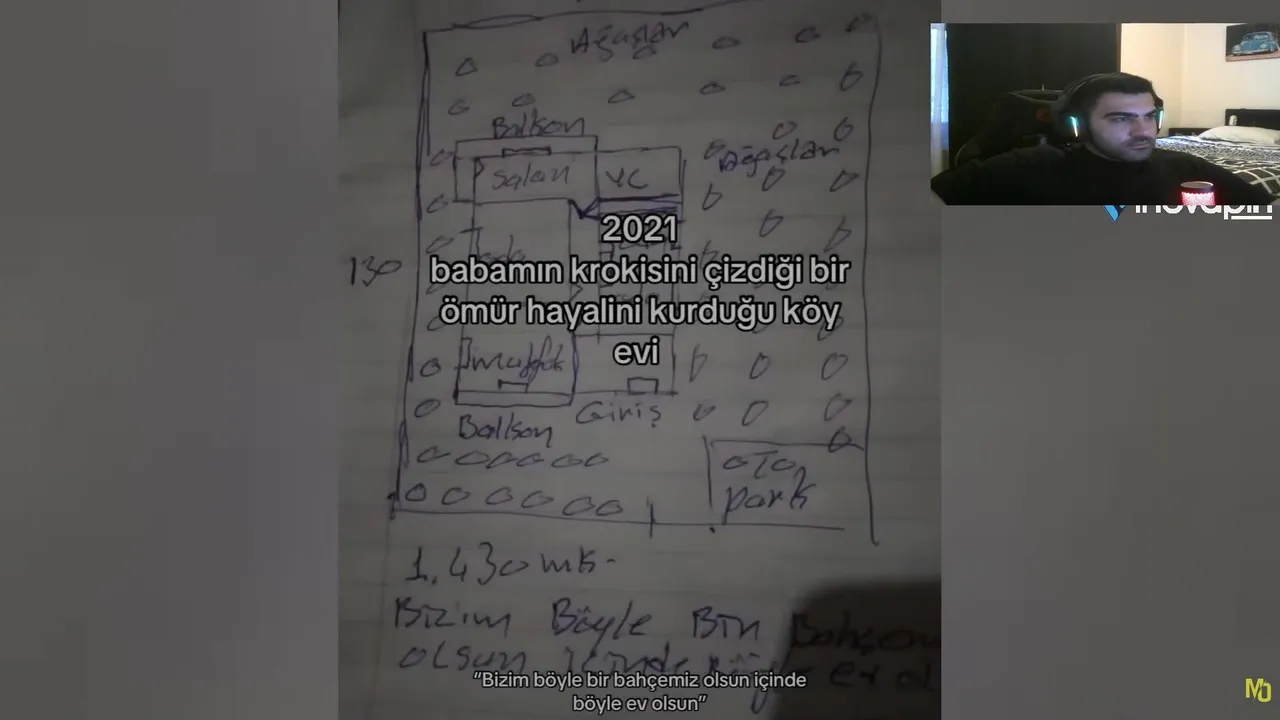 Ağaçlar
Balkon
Salon
YC
Ağaçlar
2021
babamın krokisini çizdiği bir
130
ömür hayalini kurduğu köy
evi
mutfak
Giriş
Balkon
OTO
park
1.430 mk.
Bizim Böyle Bir Bahçem
olsun içinde böyle ev ol
"Bizim böyle bir bahçemiz olsun içinde
böyle ev olsun"
inovapin
MO